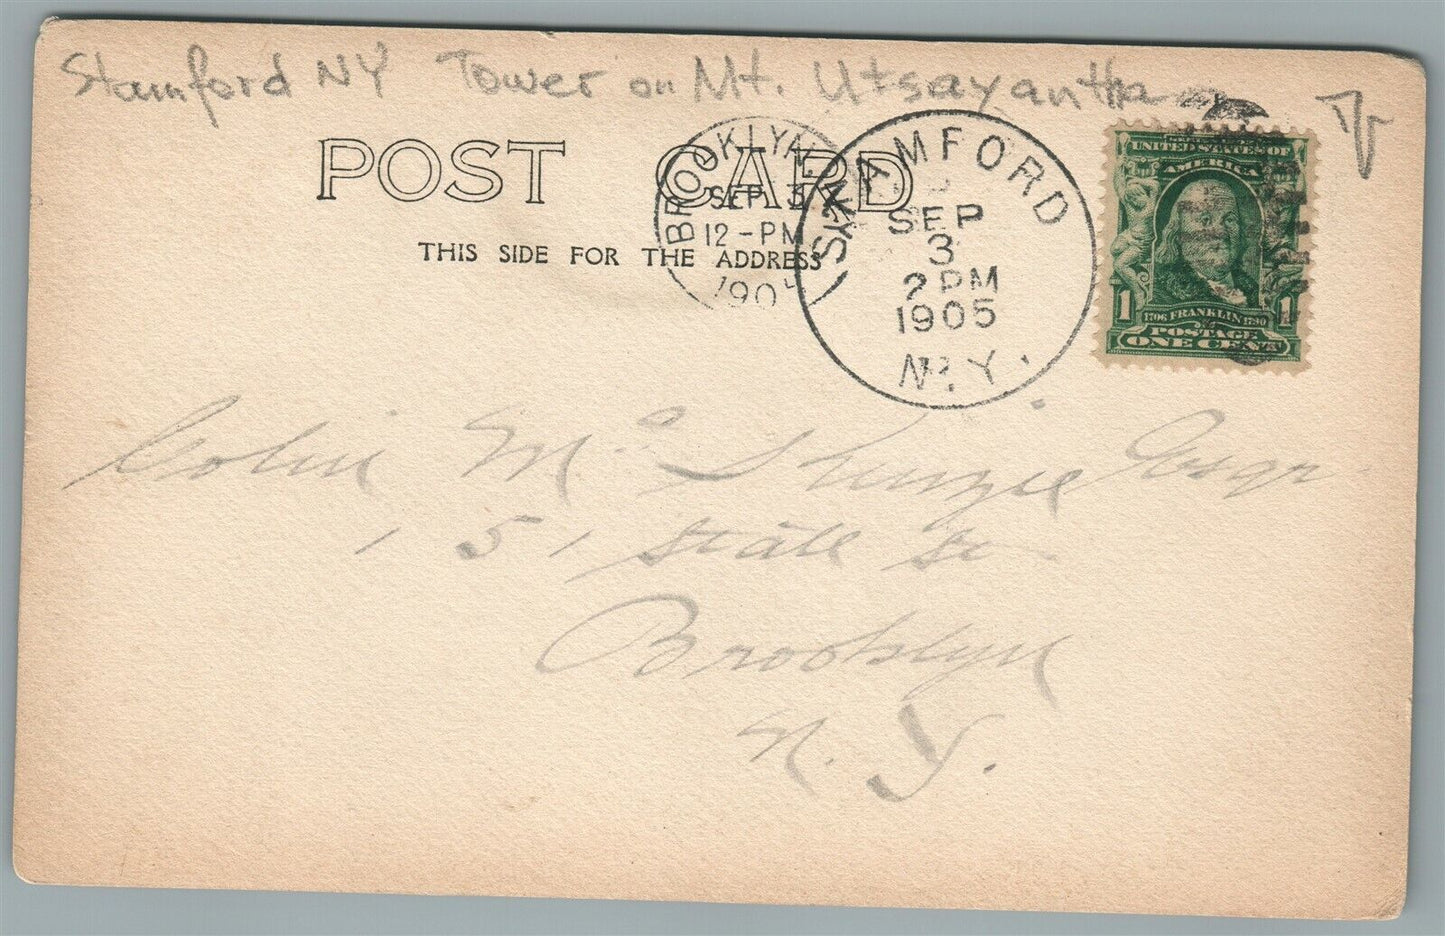 Stamford NY Tower on Mt. Utsayantha
POST CARD
THIS SIDE FOR THE ADDRESS
BROOKLYN
SEP 3
12-PM
190
STAMFORD
SEP
3
2 PM
1905
N.Y.
UNITED STATES OF
AMERICA
1 1
1706 FRANKLIN 1790
POSTAGE
ONE CENT
Colin Mc Esqr
151 State St
Brooklyn
N. Y.